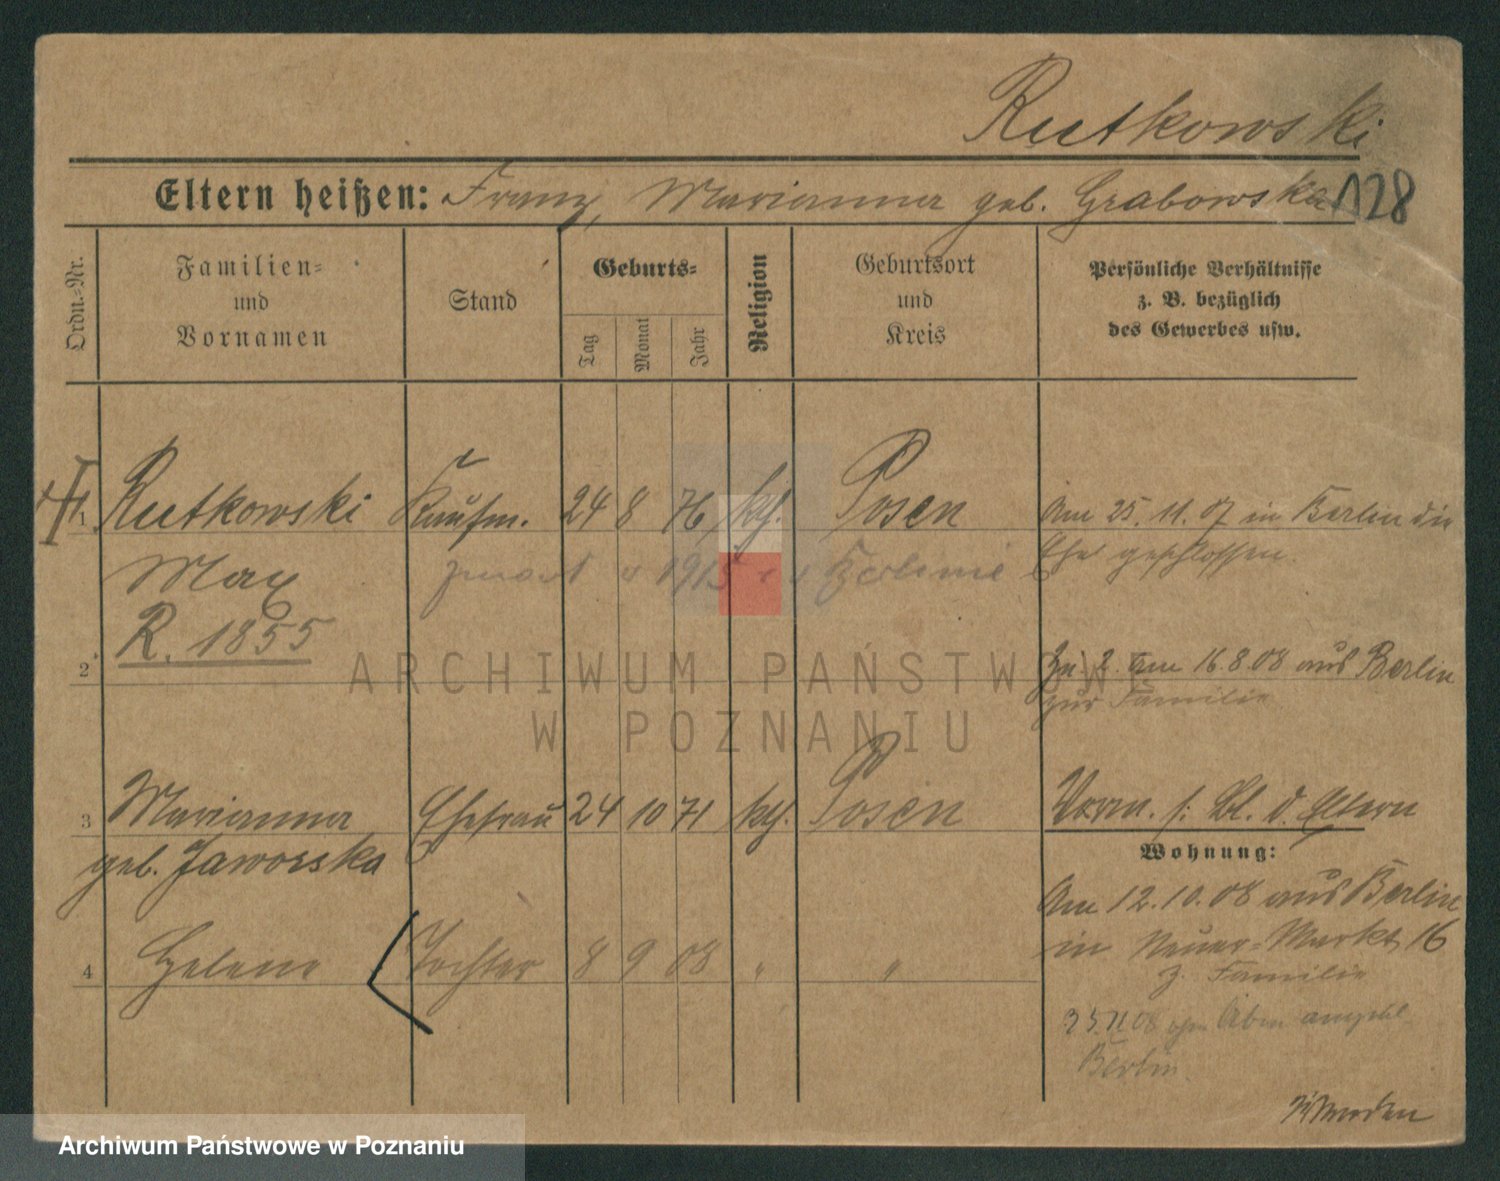 Rutkowski
Eltern heißen: Franz, Marianna geb. Grabowska 128
Ordn.-Nr.
Familien-
und
Vornamen
Stand
Geburts-
Tag
Monat
Jahr
Religion
Geburtsort
und
Kreis
Persönliche Verhältnisse
z. B. bezüglich
des Gewerbes usw.
1 Rutkowski Kaufm. 24 8 76 kth. Posen Am 25.11.07 in Berlin die
Ehe geschlossen.
Max 1915 Berlinie
R. 1855
2 Zu 2. am 16.8.08 aus Berlin
zur Familie
ARCHIWUM PAŃSTWOWE
W POZNANIU
3 Marianna Ehefrau 24 10 71 kth. Posen d. Eltern
geb. Jaworska
Wohnung:
Am 12.10.08 aus Berlin
in Neuer-Markt 16
z. Familie
4 Helene Tochter 8 9 08 " "
Berlin
Archiwum Państwowe w Poznaniu